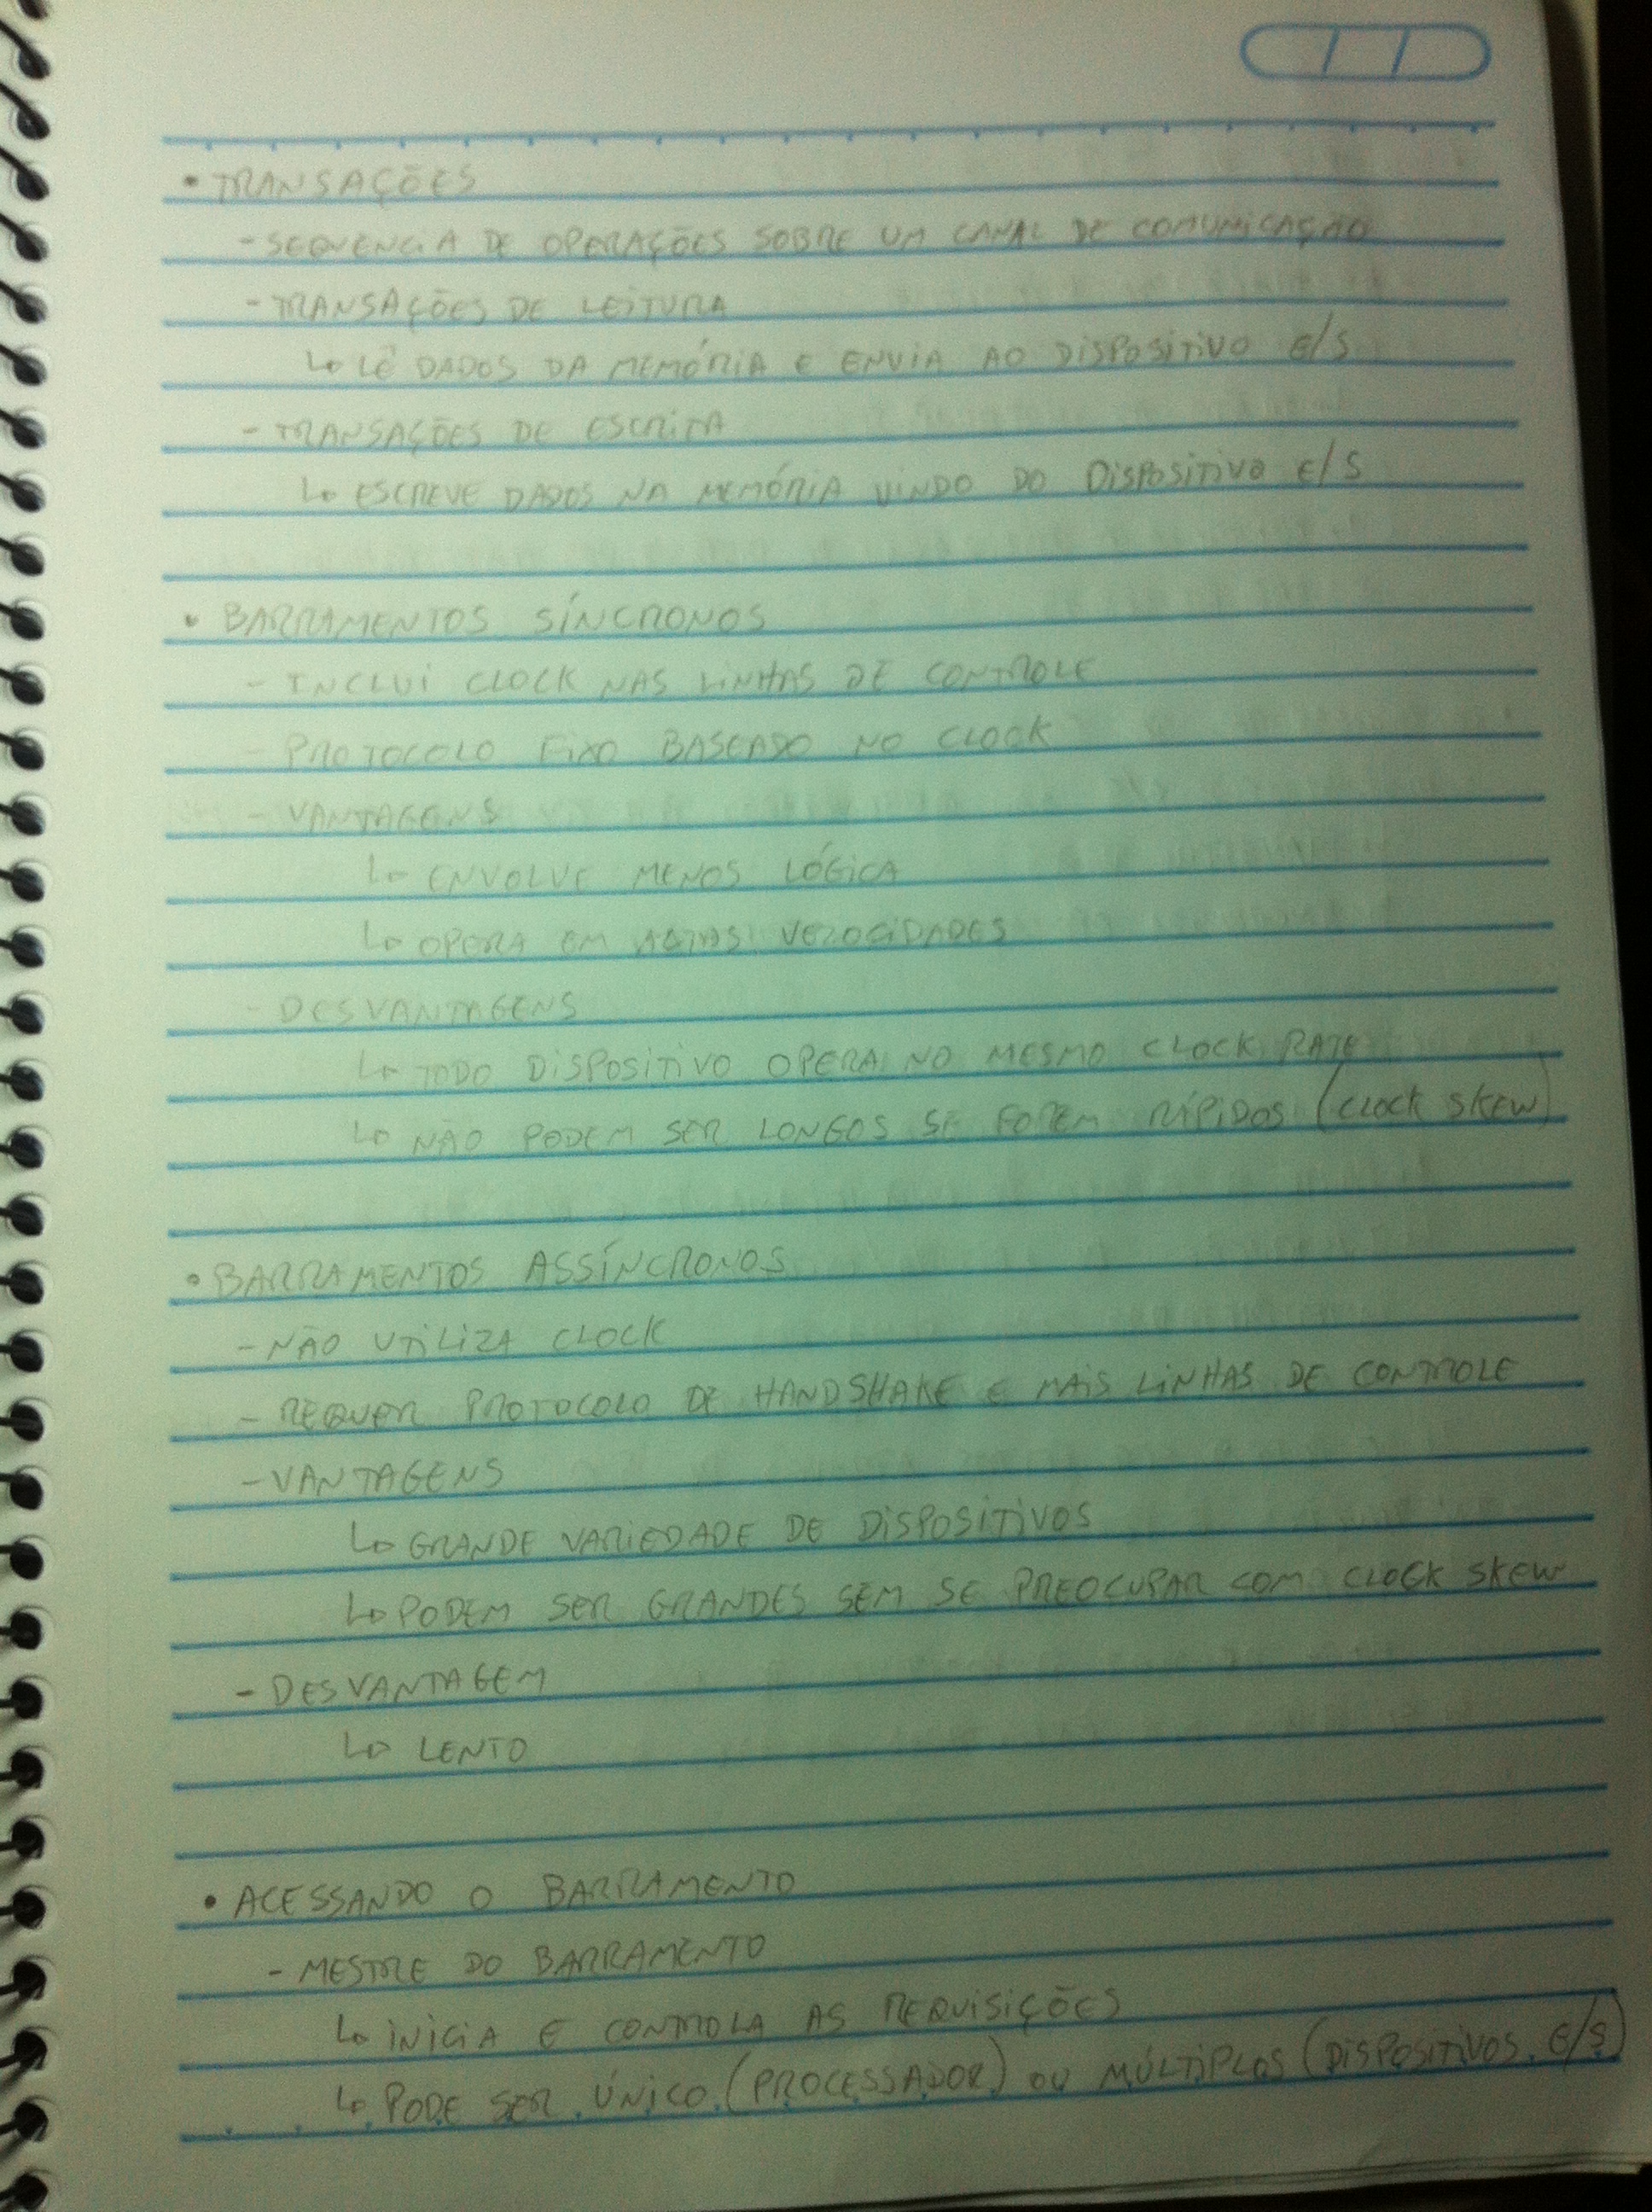 • TRANSAÇÕES
- SEQUENCIA DE OPERAÇÕES SOBRE UM CANAL DE COMUNICAÇÃO
- TRANSAÇÕES DE LEITURA
↳ LÊ DADOS DA MEMÓRIA E ENVIA AO DISPOSITIVO E/S
- TRANSAÇÕES DE ESCRITA
↳ ESCREVE DADOS NA MEMÓRIA VINDO DO DISPOSITIVO E/S
• BARRAMENTOS SÍNCRONOS
- INCLUI CLOCK NAS LINHAS DE CONTROLE
- PROTOCOLO FIXO BASEADO NO CLOCK
- VANTAGENS
↳ ENVOLVE MENOS LÓGICA
↳ OPERA EM ALTAS VELOCIDADES
- DESVANTAGENS
↳ TODO DISPOSITIVO OPERA NO MESMO CLOCK RATE
↳ NÃO PODEM SER LONGOS SE FOREM RÍPIDOS (CLOCK SKEW)
• BARRAMENTOS ASSÍNCRONOS
- NÃO UTILIZA CLOCK
- REQUER PROTOCOLO DE HANDSHAKE E MAIS LINHAS DE CONTROLE
- VANTAGENS
↳ GRANDE VARIEDADE DE DISPOSITIVOS
↳ PODEM SER GRANDES SEM SE PREOCUPAR COM CLOCK SKEW
- DESVANTAGEM
↳ LENTO
• ACESSANDO O BARRAMENTO
- MESTRE DO BARRAMENTO
↳ INICIA E CONTROLA AS REQUISIÇÕES
↳ PODE SER ÚNICO (PROCESSADOR) OU MÚLTIPLOS (DISPOSITIVOS E/S)